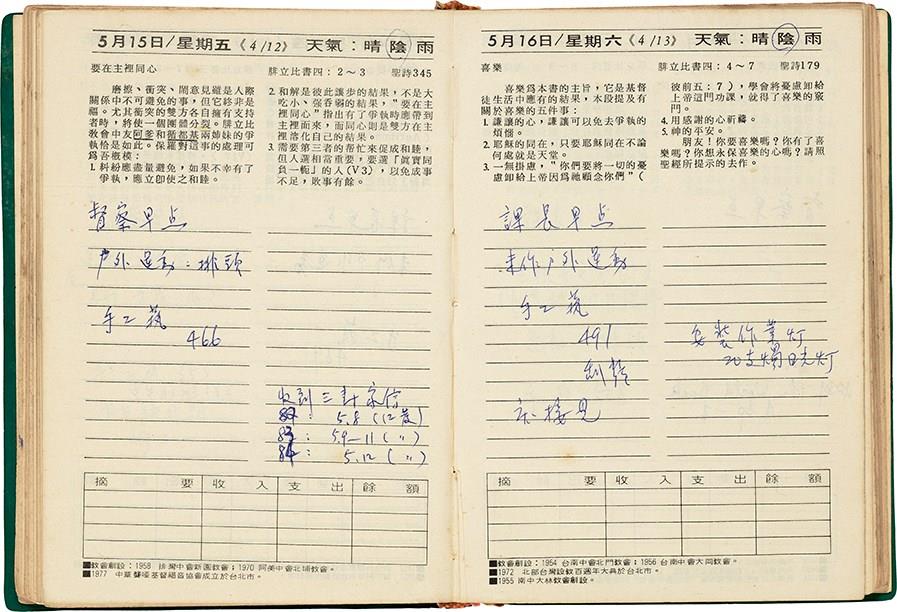 5月15日/星期五《4/12》 天氣：晴 陰 雨
要在主裡同心 腓立比書四：2～3 聖詩345
磨擦、衝突、鬧意見雖是人際
關係中不可避免的事，但它終非是
福。尤其衝突的雙方各自擁有支持
者時，將使一個團體分裂。腓立比
教會中友阿爹和循都基兩姊妹的爭
執恰是如此。保羅對這事的處理可
爲吾楷模：
1. 糾紛應盡量避免，如果不幸有了
爭執，應立卽使之和睦。
2. 和解是彼此讓步的結果，不是大
吃小、强吞弱的結果，“要在主
裡同心”指出有了爭執時應帶到
主裡面來，而同心則是雙方在主
裡落伍自己的結果。
3. 需要第三者的幫忙來促成和睦，
但人選相當重要，要選「眞實同
負一軛」的人（V3），以免成事
不足，敗事有餘。
督察早点
户外運動：排頭
手工藝
466
收到三封家信
83： 5.8（12歲）
83： 5.9—11（〃）
84： 5.12（〃）
摘 要 收 入 支 出 餘 額
■教會創設：1958 排灣中會新園教會；1970 阿美中會北埔教會。
■1977 中華聲啞基督福音協會成立於台北市。
5月16日/星期六《4/13》 天氣：晴 陰 雨
喜樂 腓立比書四：4～7 聖詩179
喜樂爲本書的主旨，它是基督
徒生活中應有的結果，本段提及有
關於喜樂的五件事：
1. 謙讓的心，謙讓可以免去爭執的
煩惱。
2. 耶穌的同在，只要耶穌同在不論
何處就是天堂。
3. 一無掛慮，“你們要將一切的憂
慮卸給上帝因爲祂顧念你們”（
彼前五：7），學會將憂慮卸給
上帝這門功課，就得了喜樂的竅
門。
4. 用感謝的心祈禱。
5. 神的平安。
朋友！你要喜樂嗎？你有了喜
樂嗎？你想永保喜樂的心嗎？請照
聖經所提示的去作。
課長早点
未作户外運動
手工藝
491
剃髮
未接見
安裝作業灯
20支燭日光灯
摘 要 收 入 支 出 餘 額
■教會創設：1954 台南中會北門教會；1956 台南中會大同教會。
■1972 北部台灣設教百週年大典於台北市。
■1955 南中大林教會創設。